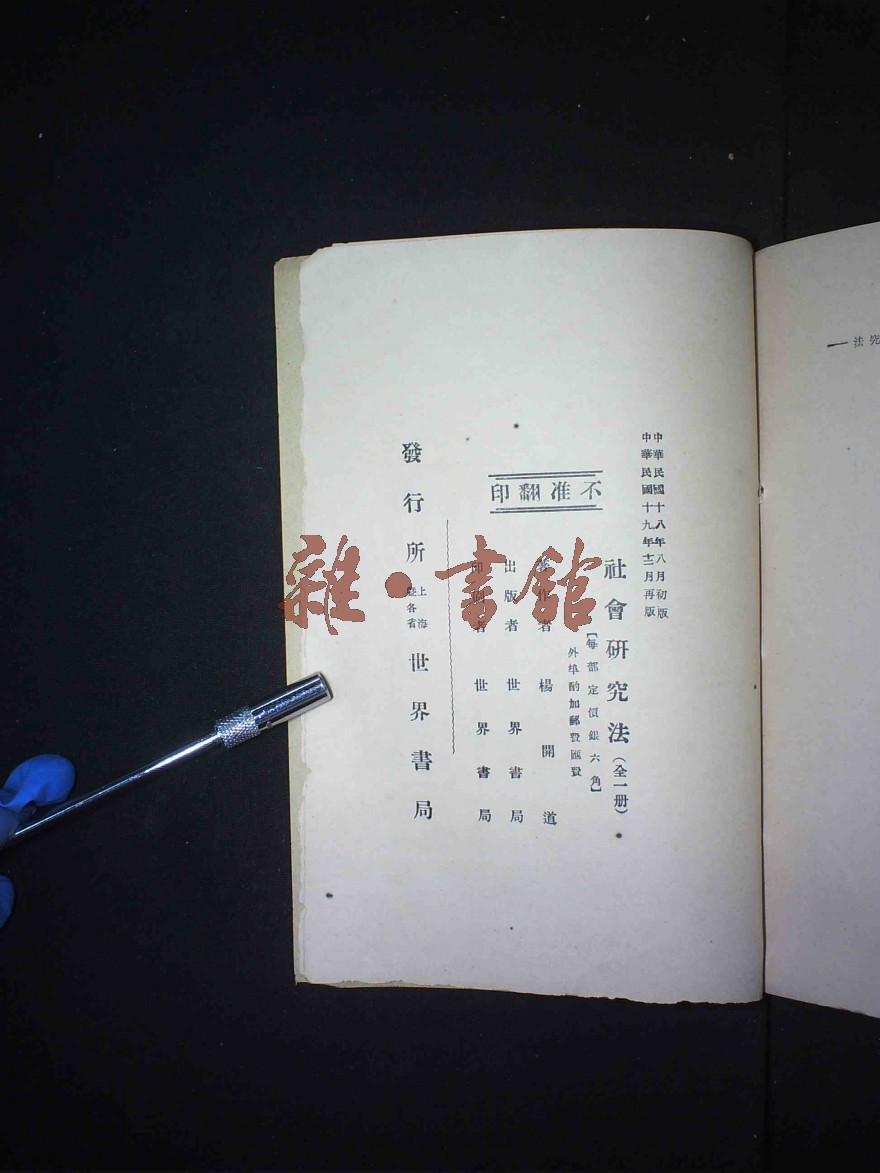 中華民國十八年八月初版
中華民國十九年十二月再版
不准翻印
社會研究法(全一册)
【每部定價銀六角】
外埠酌加郵費匯費
著作者 楊開道
出版者 世界書局
印刷者 世界書局
發行所 上海 暨各省 世界書局
究法
雜·書館